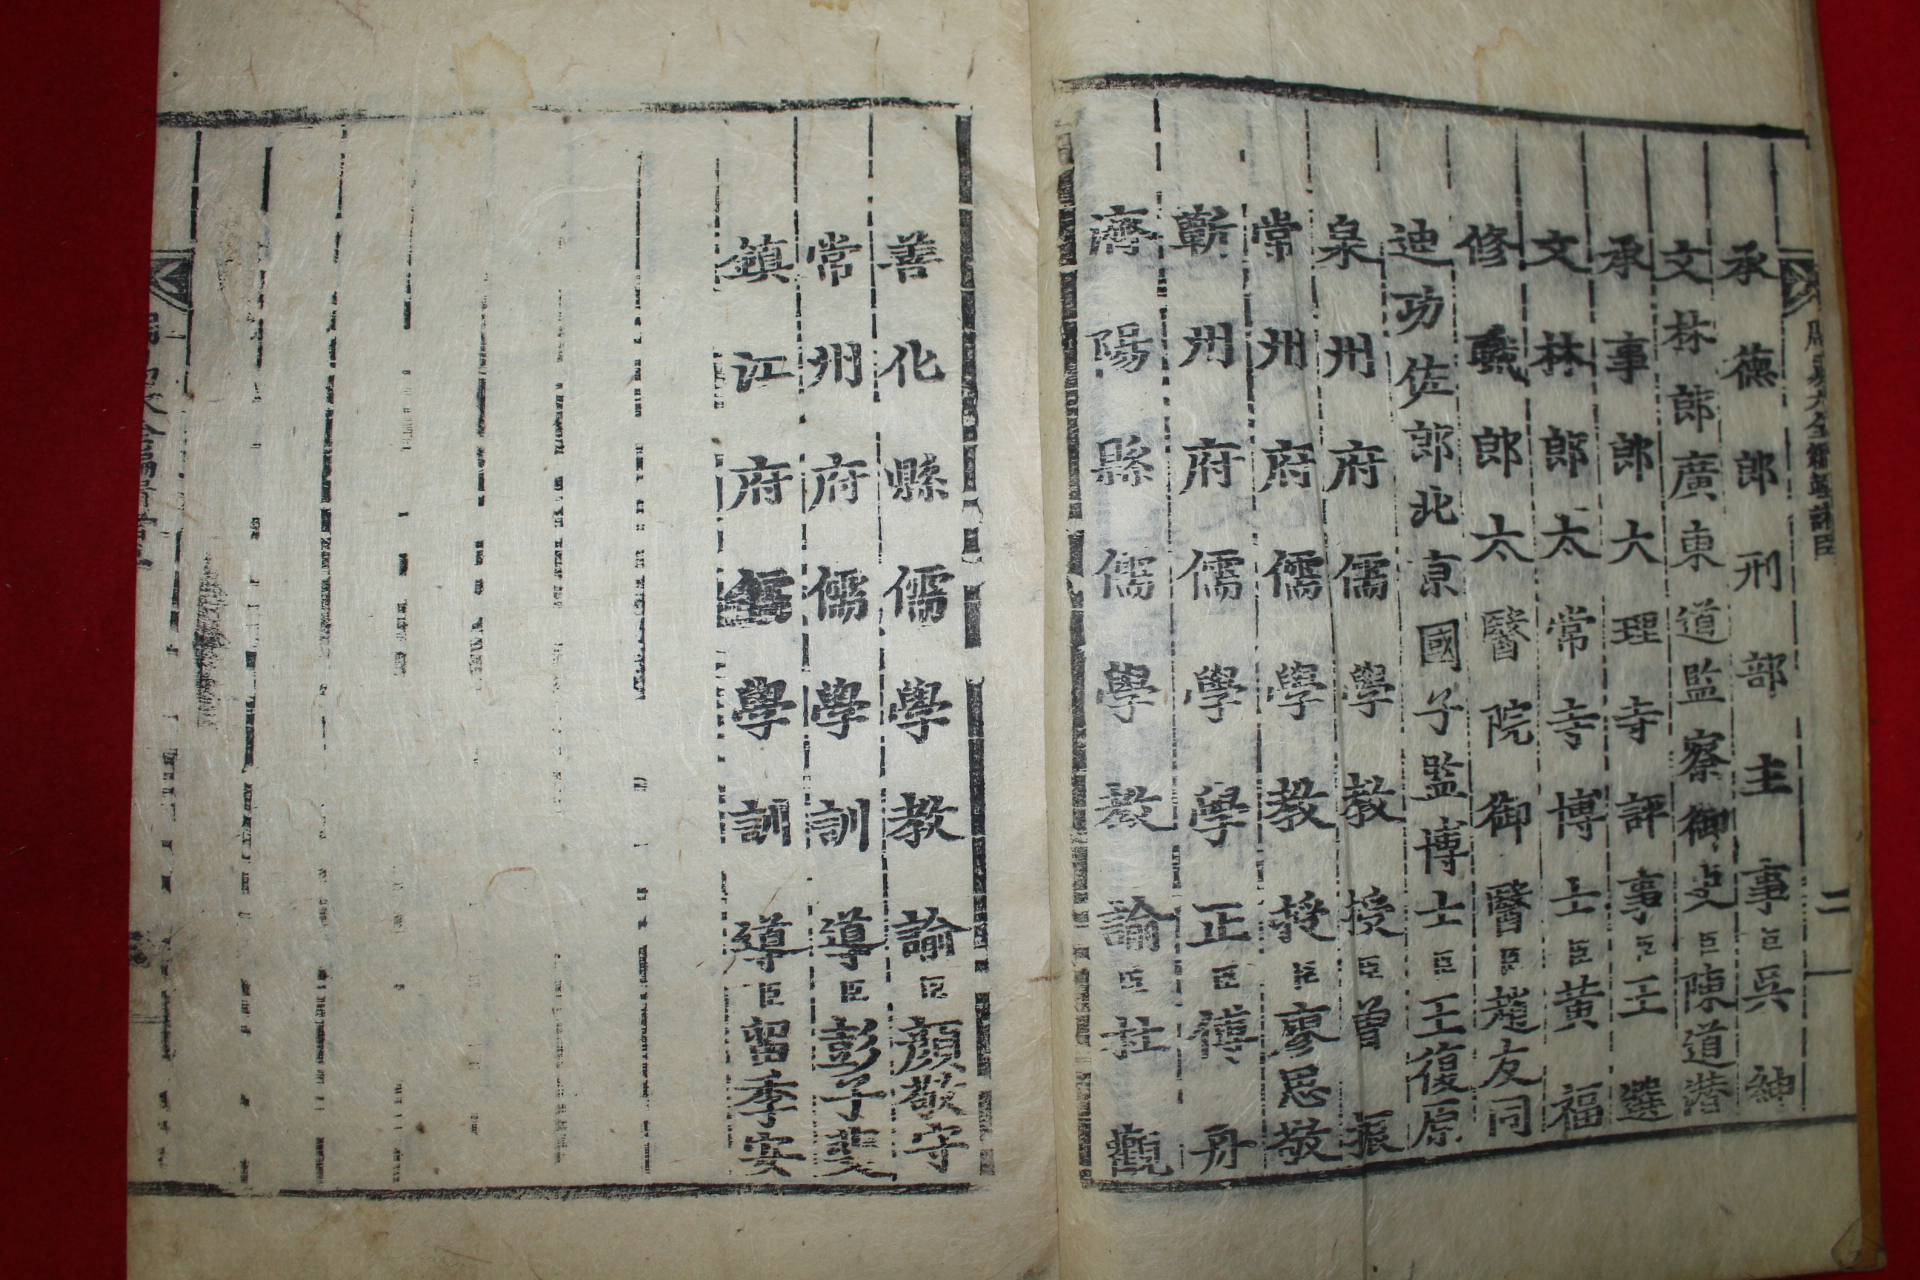 周易大全編纂諸臣 二
承德郎刑部主事臣吳紳
文林郎廣東道監察御史臣陳道潛
承事郎大理寺評事臣王選
文林郎太常寺博士臣黃福
修職郎太醫院御醫臣趙友同
迪功佐郎北京國子監博士臣王復原
泉州府儒學教授臣曾振
常州府儒學教授臣廖思敬
蘄州府儒學學正臣傅舟
濟陽縣儒學教諭臣杜觀
善化縣儒學教諭臣顏敬守
常州府儒學訓導臣彭子斐
鎮江府儒學訓導臣留季安